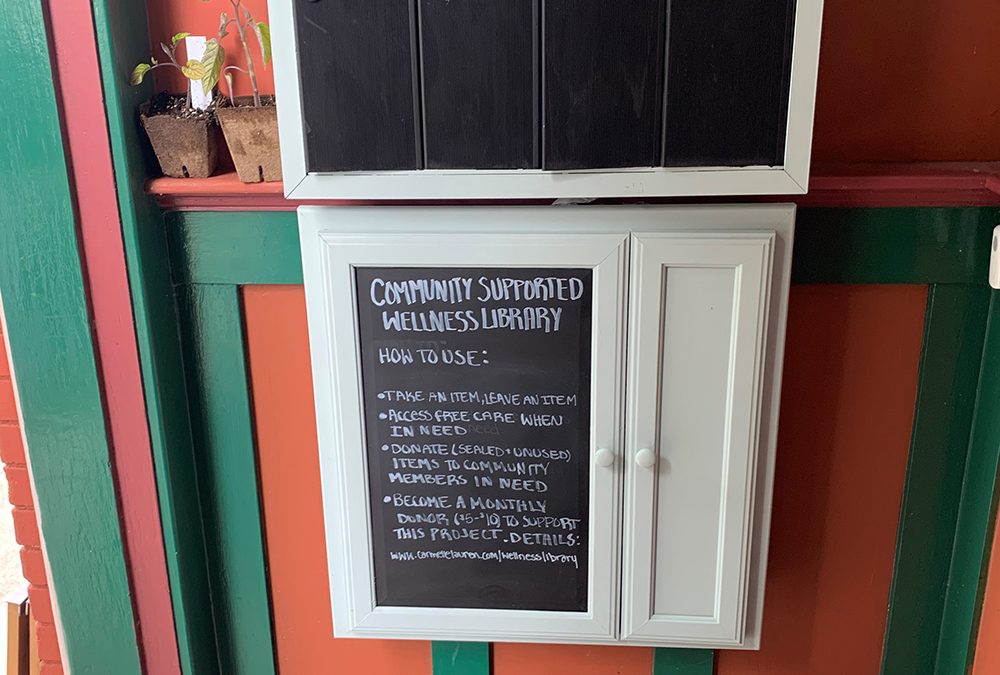 COMMUNITY SUPPORTED
WELLNESS LIBRARY
HOW TO USE:
•TAKE AN ITEM, LEAVE AN ITEM
•ACCESS FREE CARE WHEN
IN NEED
•DONATE (SEALED + UNUSED)
ITEMS TO COMMUNITY
MEMBERS IN NEED
•BECOME A MONTHLY
DONOR ($5-$10) TO SUPPORT
THIS PROJECT. DETAILS:
www.carmellelauren.com/wellnesslibrary